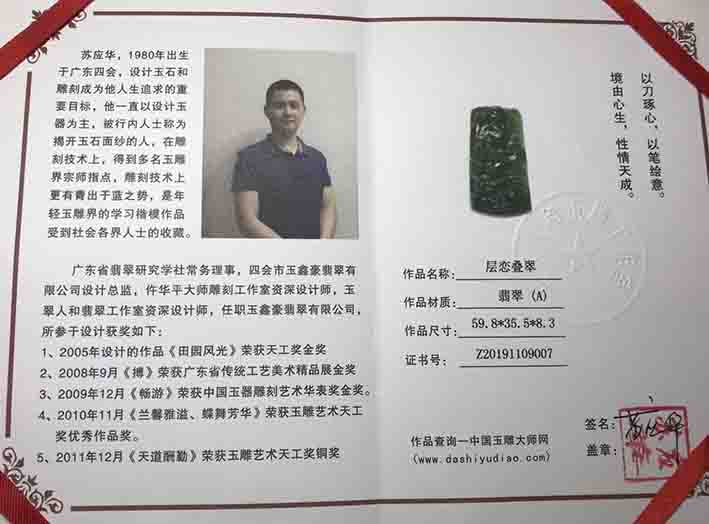 苏应华，1980年出生
于广东四会，设计玉石和
雕刻成为他人生追求的重
要目标，他一直以设计玉
器为主，被行内人士称为
揭开玉石面纱的人，在雕
刻技术上，得到多名玉雕
界宗师指点，雕刻技术上
更有青出于蓝之势，是年
轻玉雕界的学习楷模作品
受到社会各界人士的收藏。
广东省翡翠研究学社常务理事，四会市玉鑫豪翡翠有
限公司设计总监，仵华平大师雕刻工作室资深设计师，玉
翠人和翡翠工作室资深设计师，任职玉鑫豪翡翠有限公司，
所参于设计获奖如下：
1、2005年设计的作品《田园风光》荣获天工奖金奖
2、2008年9月《搏》荣获广东省传统工艺美术精品展金奖
3、2009年12月《畅游》荣获中国玉器雕刻艺术华表奖金奖。
4、2010年11月《兰馨雅溢、蝶舞芳华》荣获玉雕艺术天工
奖优秀作品奖。
5、2011年12月《天道酬勤》荣获玉雕艺术天工奖铜奖
以刀琢心，以笔绘意。
境由心生，性情天成。
作品名称：层恋叠翠
作品材质：翡翠（A）
作品尺寸：59.8*35.5*8.3
证书号：Z20191109007
作品查询一中国玉雕大师网
(www.dashiyudiao.com)
签名：
盖章：